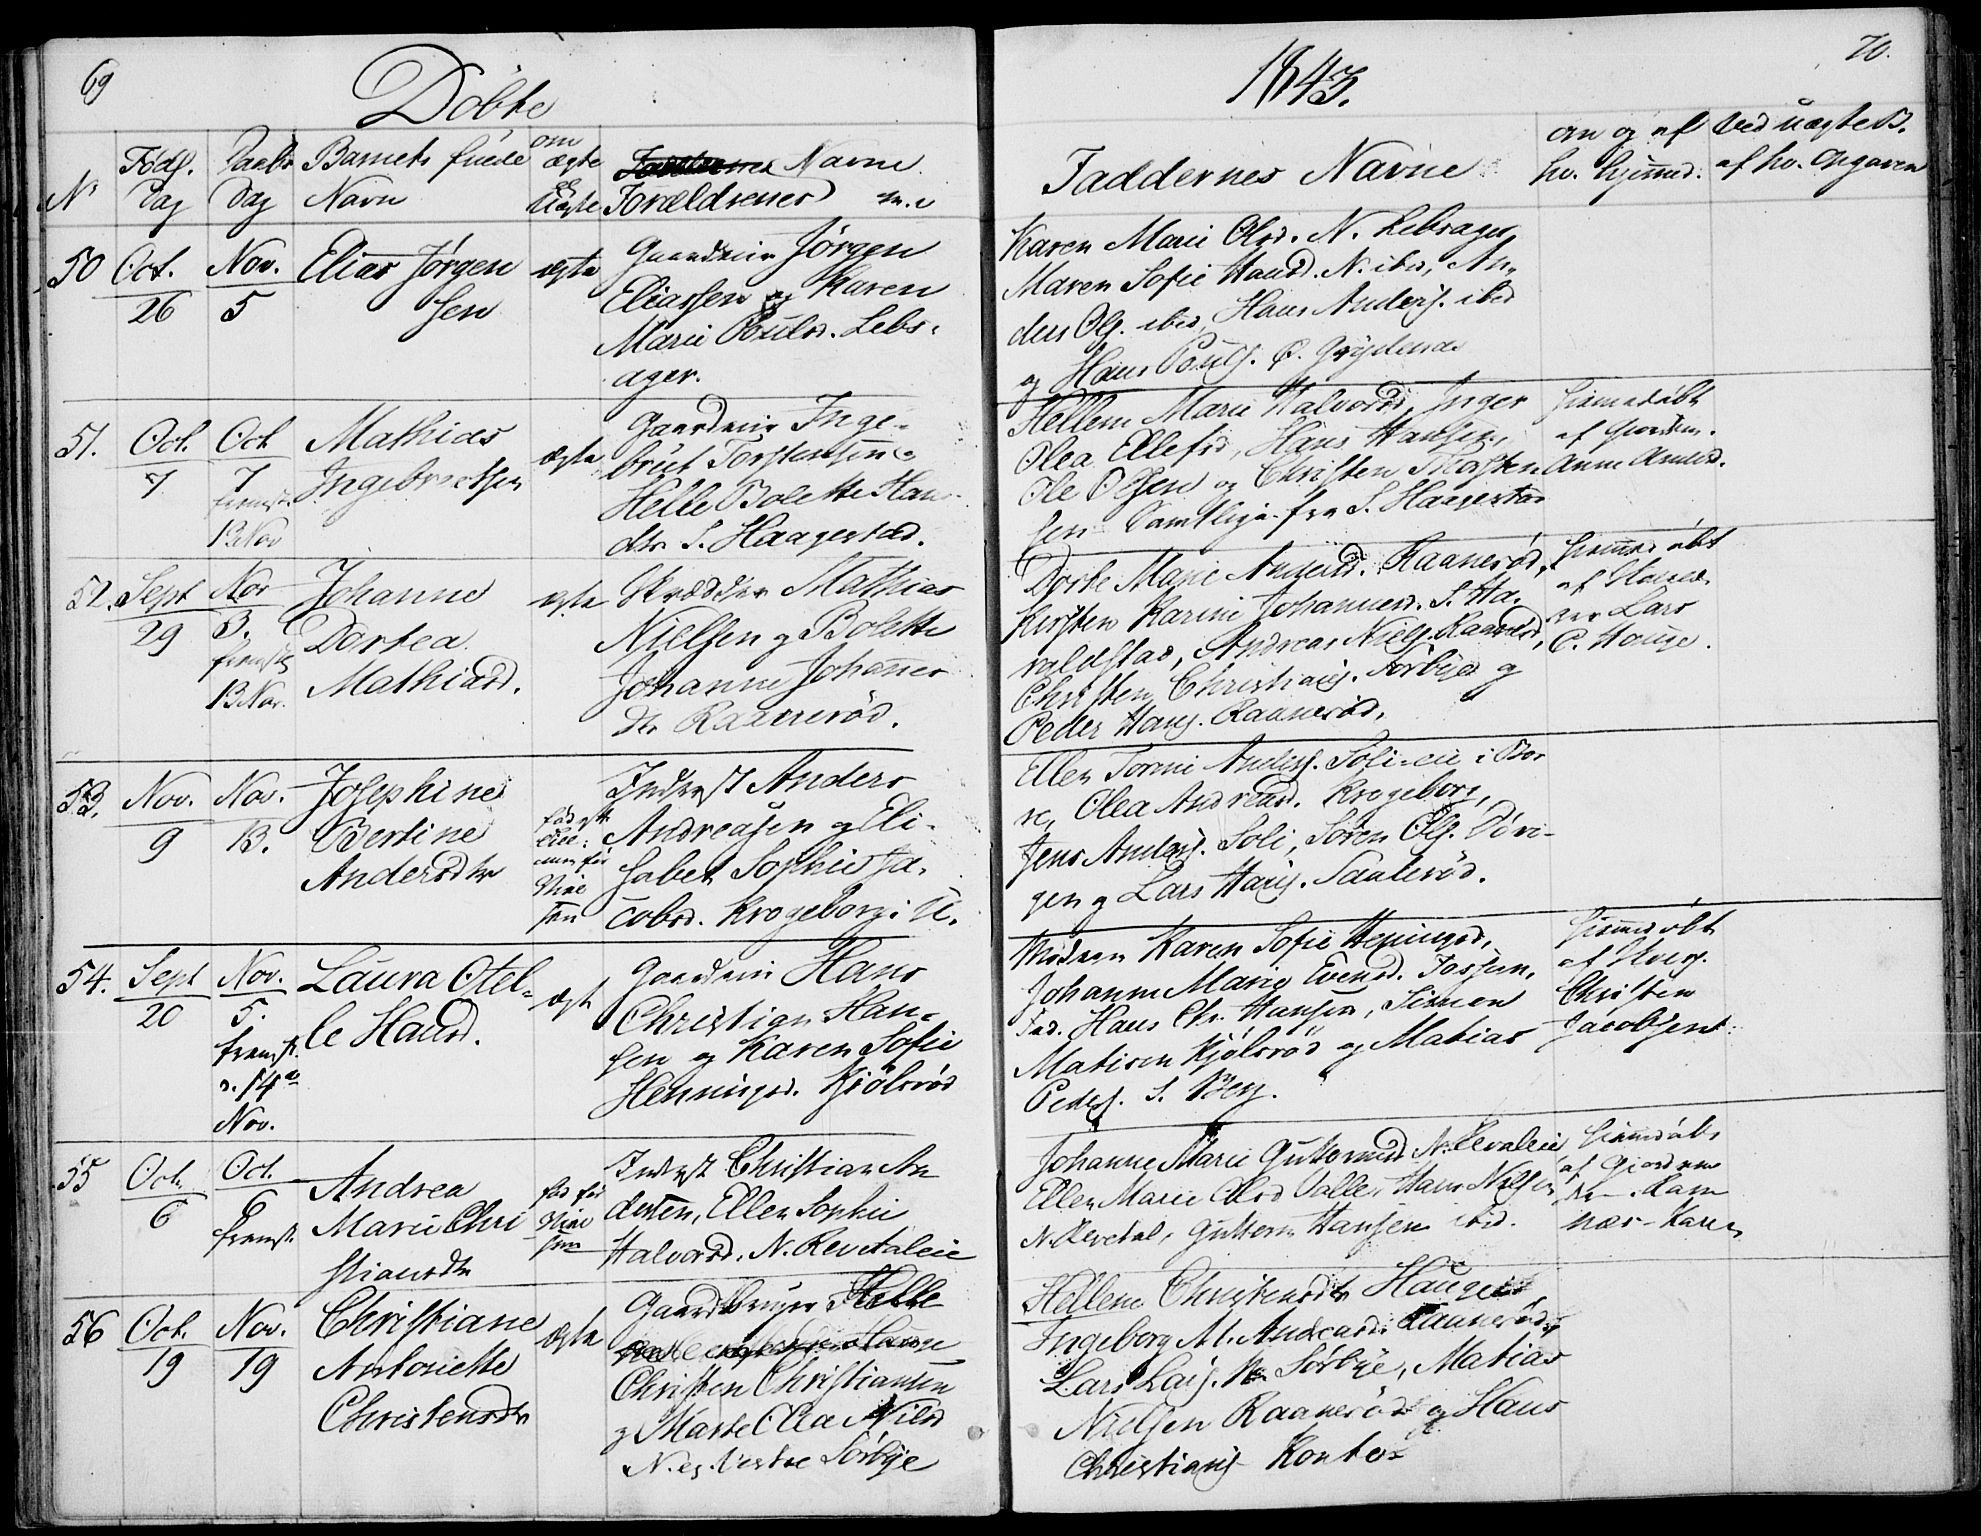 69
Döbte
1843.
70.
No
Föds. Dag
Daabs Dag
Barnets fulde Navn
om ægte el. uægte
Forældrenes Navne m.v.
Faddernes Navne
om og af hv. hjemmed.
Ved uægte B. af hv. Opgaven
50
Oct. 26
Nov. 5
Elias Jörgen
sen
ægte
Gaardmin Jörgen
Eliassen og Karen
Marie Poulsd. Lebs-
ager.
Karen Marie Olsd. N. Lebsager,
Maren Sofie Hansd. N. ibid, An-
ders Ols. ibid, Hans Anders. ibid
og Hans Pouls.
51.
Oct. 7
Oct 7
fremst.
12 Nov
Mathias
Ingebretsen
ægte
Gaardmin Inge-
bret Torstensen og
Helle Bolette Hans
dtr S. Haagestad.
Hellene Marie Halvorsd, Inger
Olea Ellefsd, Hans Hansen,
Ole Olsen og Christen Thorsten
sen Samtlige fra S. Haagestad
hjemmedöbt
af Jordem.
Anne Andersd.
52.
Sept 29
Nov 3.
fremst.
13 Nov.
Johanne
Dortea
Mathiasd.
ægte
Skrædder Mathias
Nielsen og Bolette
Johanne Johannes
dtr Raaneröd.
Dorte Marie Andersd. Raaneröd,
Kirsten Karine Johannesd. S. Ha-
raldstad, Andreas Niels. Raaneröd,
Christen Christians. Sörbye og
Peder Hans. Raaneröd.
hjemmedöbt
af
Lars
C. Hauge.
53.
Nov. 9
Nov. 13.
Josephine
Bertine
Andersdtr
Inderst Anders
Andreasen og Eli-
sabet Sophie Ja-
cobsd. Krogeborg i U.
Ellen Tomine Anders. Soli-eie i Bor
re, Olea Andreasd. Krogeborg,
Jens Anders. Soli, Sören Ols. Dövi-
gen og Lars Hans. Sauleröd.
54.
Sept 20
Nov. 5.
fremst.
d. 14de
Nov.
Laura Otel-
le Hansd.
ægte
Gaardmin Hans
Christian Han-
sen og Karen Sofie
Henningsd. Kjölsröd
Modren Karen Sofie Henningsd,
Johanne Marie Evensd. Fossum,
Fad. Hans Chr. Hansen, Simon
Matisen Kjölsröd og Matias
Peders. S. Berg.
hjemmedöbt
af
Christen
Jacobsen
55
Oct. 6
Oct. 6
fremst.
Andrea
Marie Chri
stiansdtr
Inderst Christian An
dersen, Ellen Sophie
Halvorsd. N. Revetaleie
Johanne Marie Guttormsd N. Revaleie
Ellen Marie Olsd Valle, Hans Nilsen
N. Revetal, Guttorm Hansen ibid.
hjemdöbt
af Gjordem
Ram
næs - Karen
56
Oct. 19
Nov. 19
Christiane
Antoniette
Christensdtr
ægte
Gaardbruger
Christen Christiansen
og Marte Olea Nilsd
Vestre Sörbye
Hellene Christensdtr Hauge
Ingeborg M. Andreasd. Raaneröd,
Lars Lars. Sörbye, Matias
Nielsen Raaneröd og Hans
Christians. Kontor